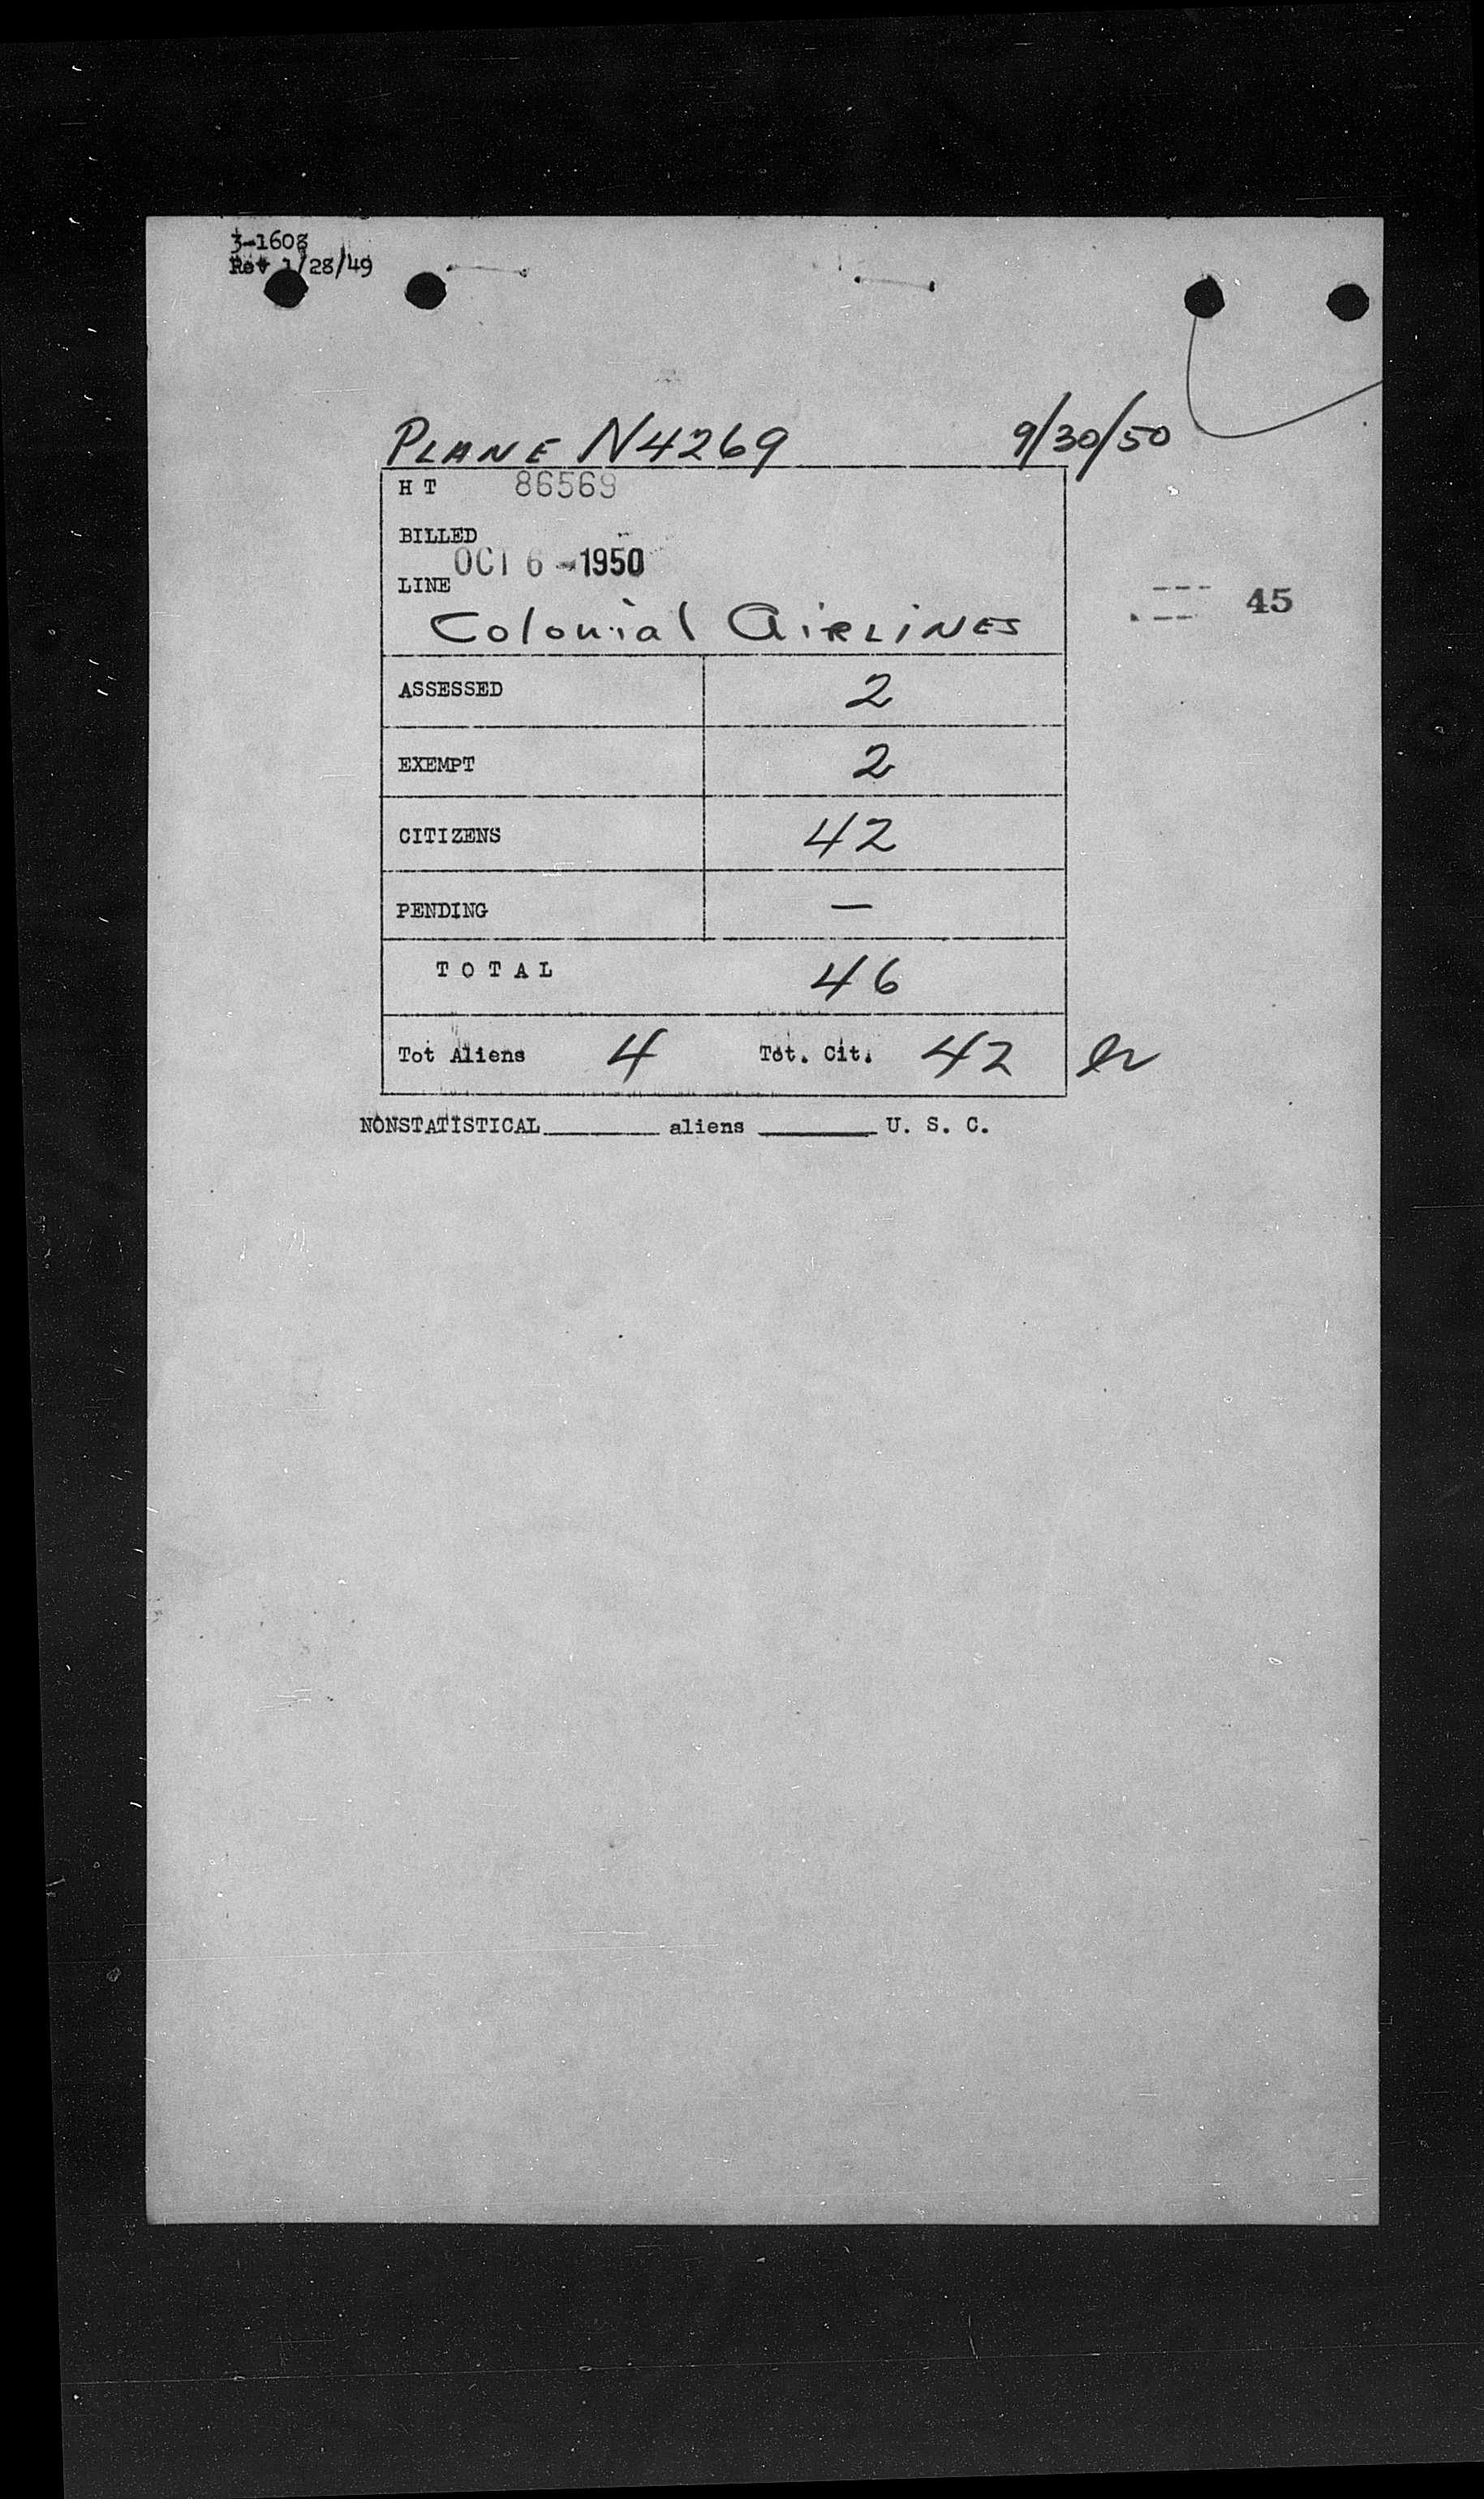 3-1608
Rev 1/28/49
PLANE N4269 9/30/50
H T 86569
BILLED
OCT 6 - 1950
LINE
Colonial AIRLINES
45
ASSESSED 2
EXEMPT 2
CITIZENS 42
PENDING —
T O T A L 46
Tot Aliens 4 Tot. Cit. 42
NONSTATISTICAL________ aliens ________ U. S. C.